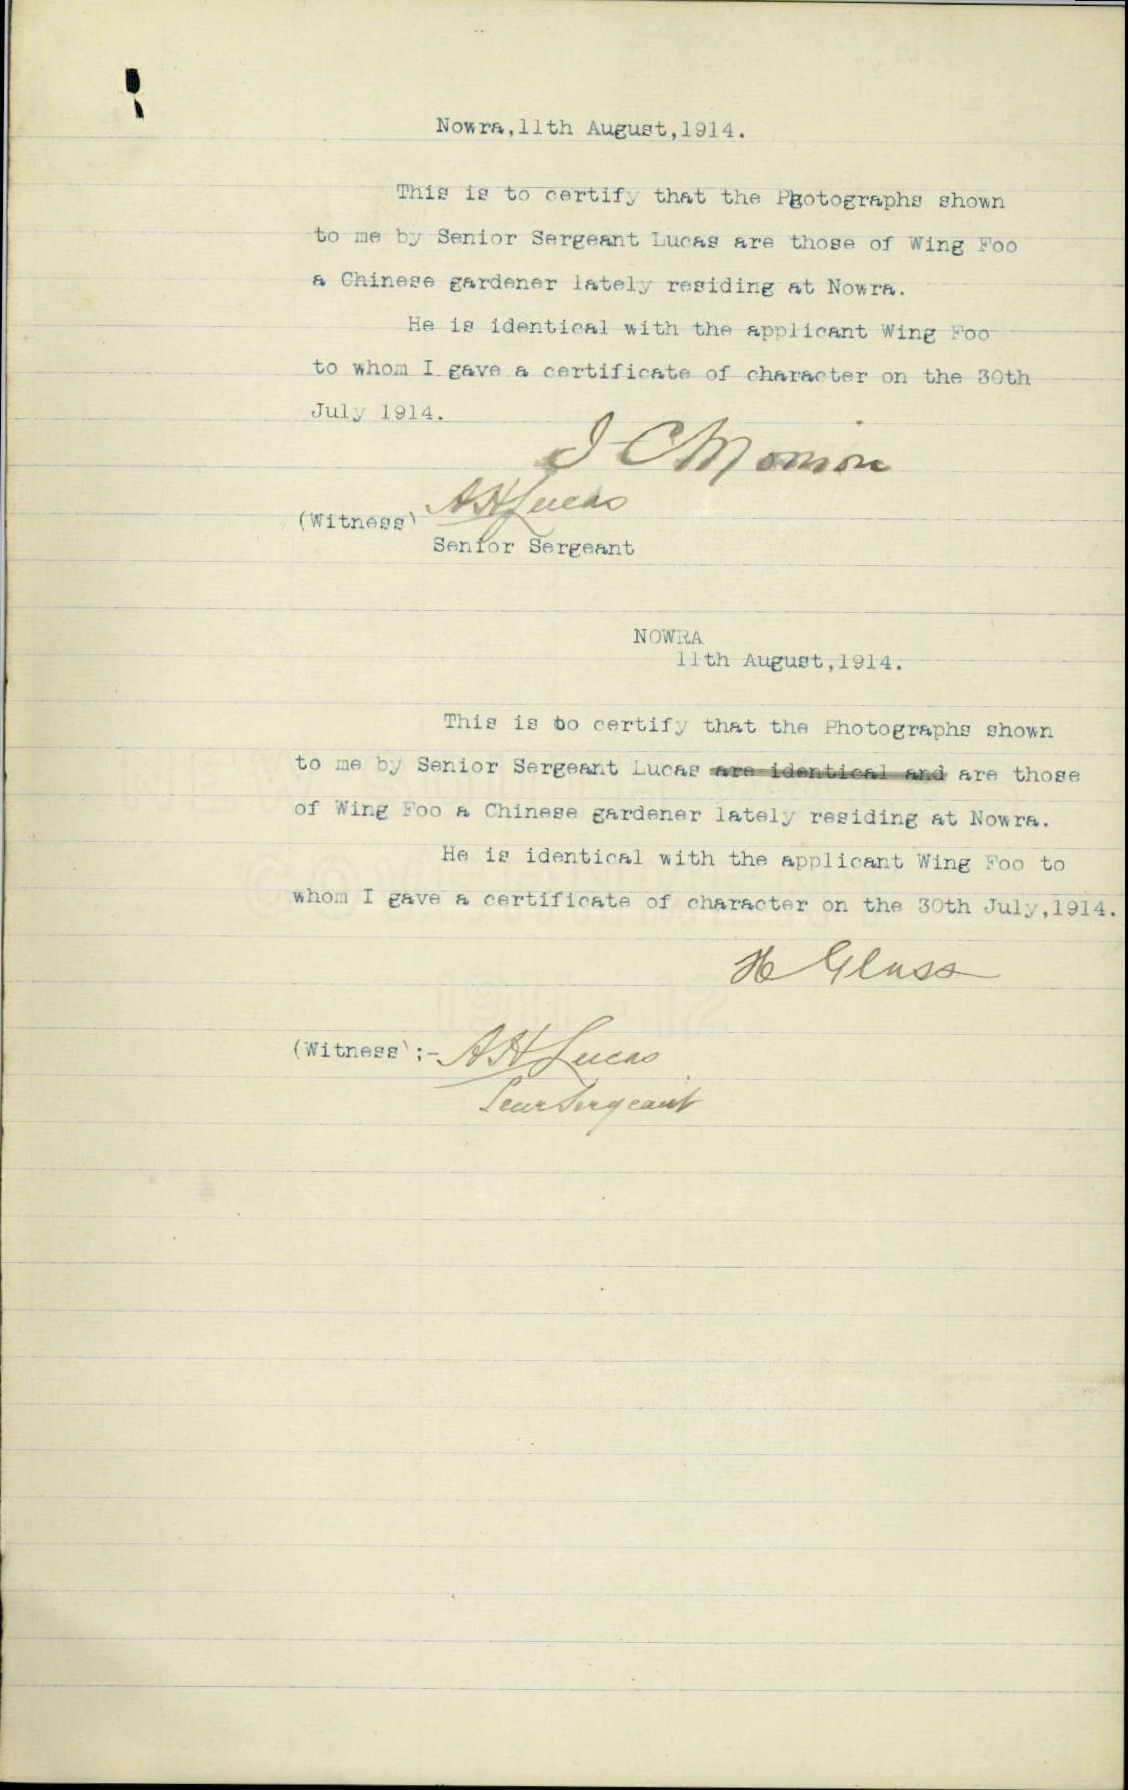 Nowra,11th August,1914.
This is to certify that the Photographs shown
to me by Senior Sergeant Lucas are those of Wing Foo
a Chinese gardener lately residing at Nowra.
He is identical with the applicant Wing Foo
to whom I gave a certificate of character on the 30th
July 1914.
J C
A H Lucas
(Witness)
Senior Sergeant
NOWRA
11th August,1914.
This is to certify that the Photographs shown
to me by Senior Sergeant Lucas are identical and are those
of Wing Foo a Chinese gardener lately residing at Nowra.
He is identical with the applicant Wing Foo to
whom I gave a certificate of character on the 30th July,1914.
H Glass
(Witness);- A H Lucas
Senr Sergeant